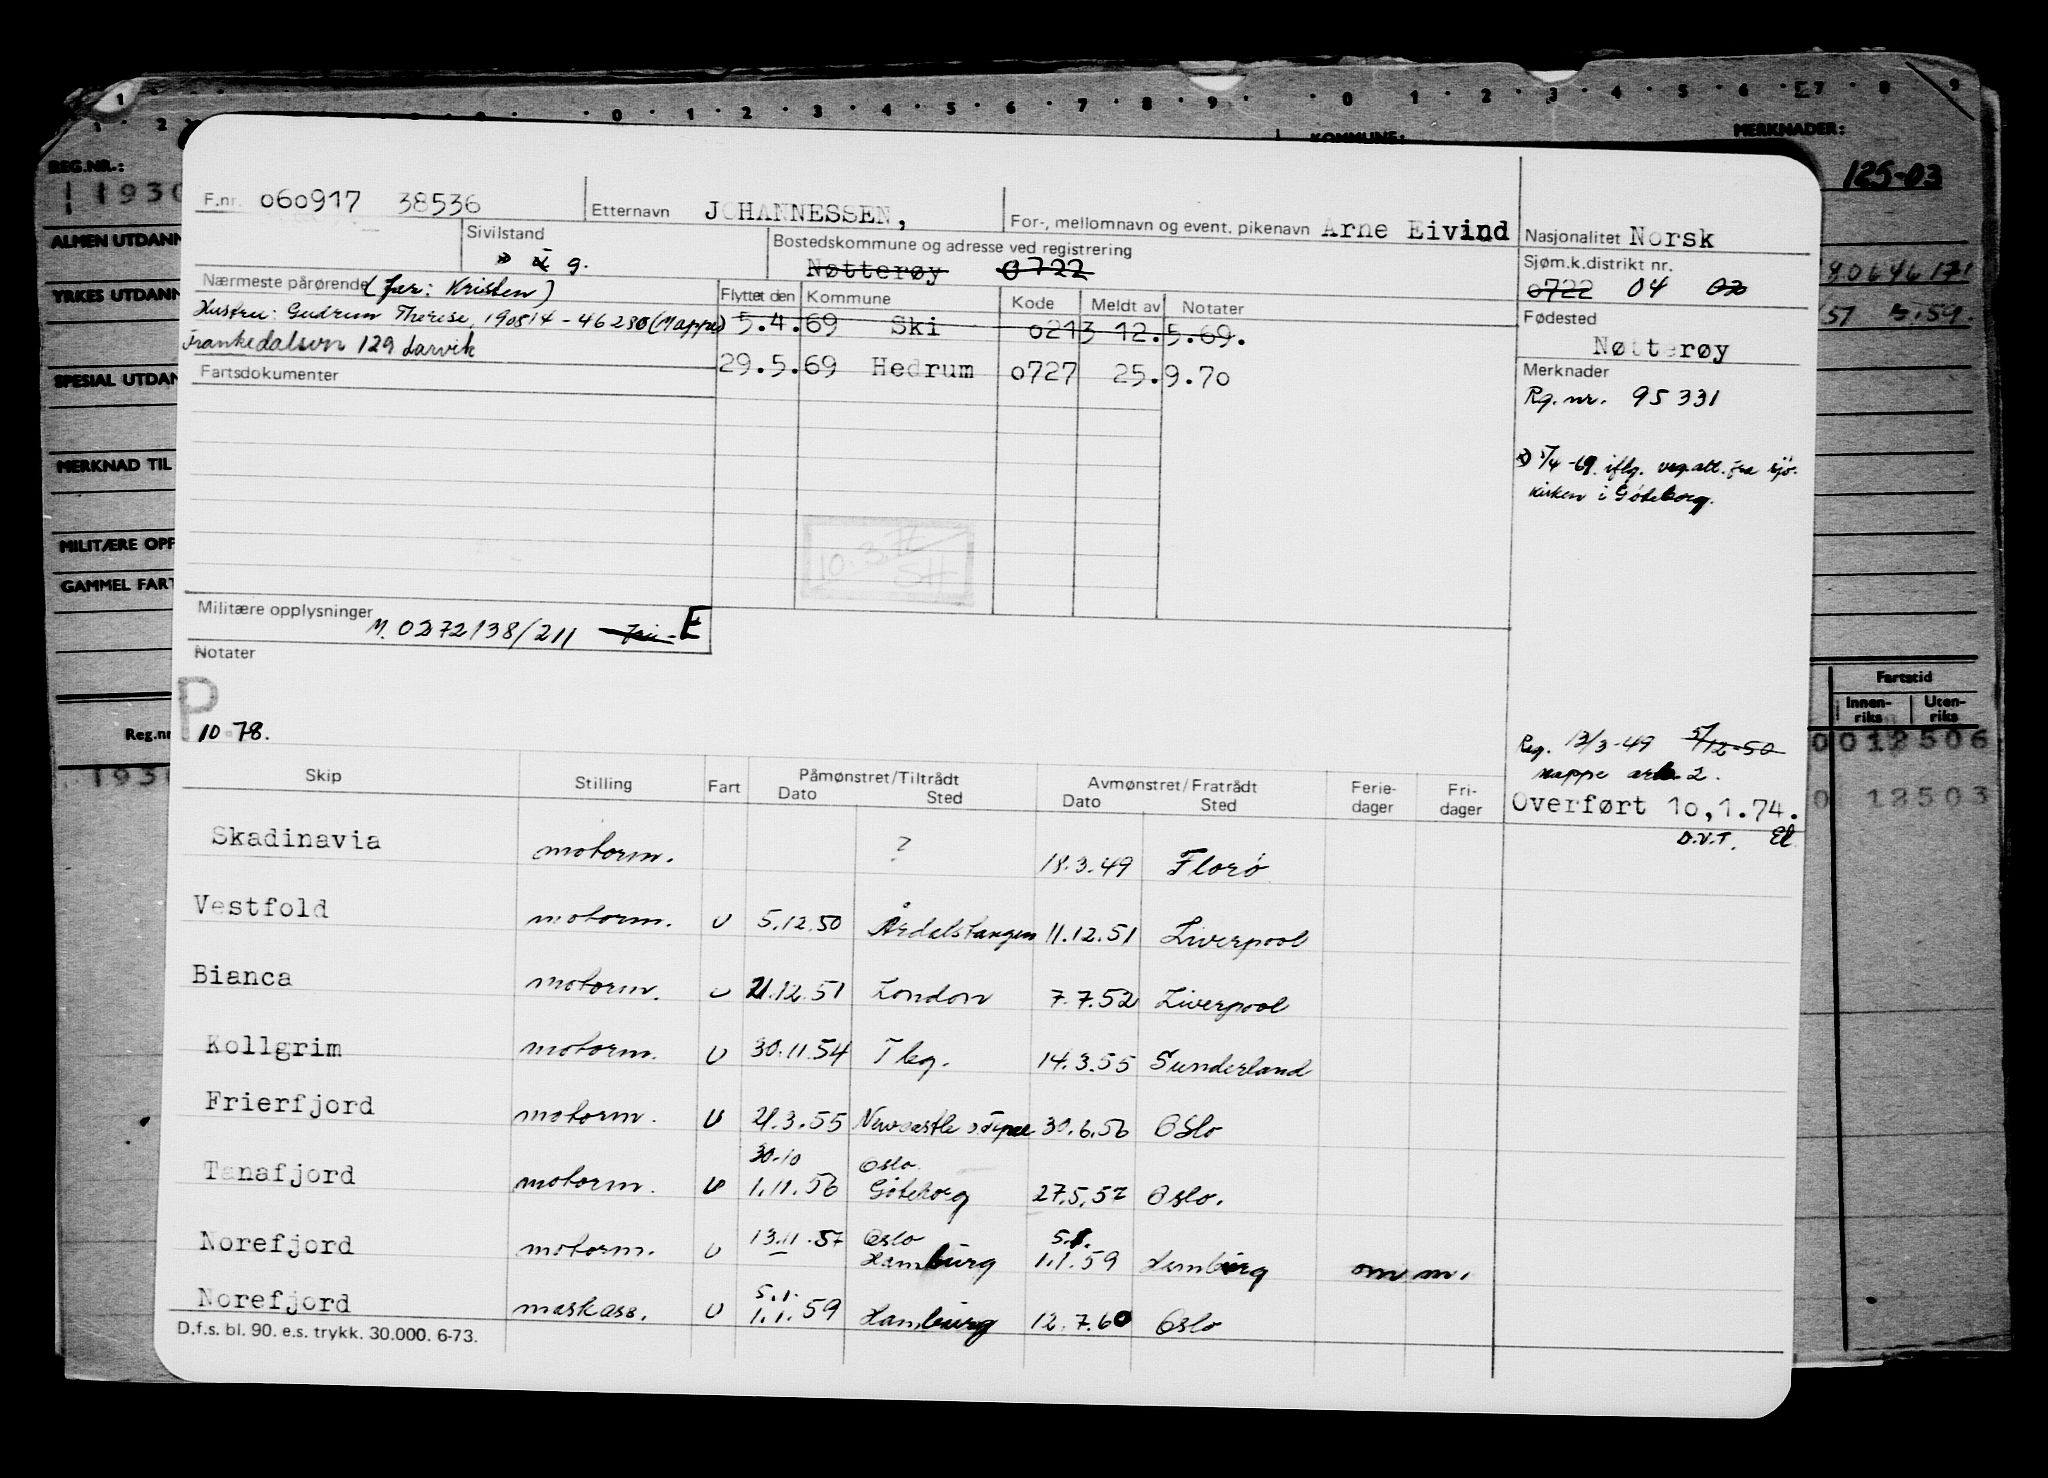 REG.NR.: KOMMUNE: MERKNADER:
125-03
F.nr. 060917 38536 Etternavn JOHANNESSEN, For-, mellomnavn og event. pikenavn Arne Eivind
Nasjonalitet Norsk
Sivilstand g.
Bostedskommune og adresse ved registrering
Nøtterøy 0722
Sjøm.k.distrikt nr.
0722 04 02
Nærmeste pårørende (far: Kristen)
Hustru: Gudrun Therese, 190814-46230 (Mappe)
Frankedalsvn 129 Larvik
Flyttet den Kommune Kode Meldt av Notater
5.4.69 Ski 0213 12.5.69.
29.5.69 Hedrum 0727 25.9.70
Fødested
Nøtterøy
Fartsdokumenter
Merknader
Rg. nr. 95331
5/4-69 iflg. vep.att. fra sjø-
kirken i Göteborg.
10.3.7
SH
Militære opplysninger M. 0272138/211 Fri - E
Notater
P
10-78.
Reg. 12/3-49 5/12-50
mappe ark 2.
Overført 10,1.74.
D.V.T. El
Skip Stilling Fart Påmønstret/Tiltrådt Avmønstret/Fratrådt Ferie- Fri-
Dato Sted Dato Sted dager dager
Skadinavia motorm. ? 18.3.49 Florø
Vestfold motorm. U 5.12.50 Årdalstangen 11.12.51 Liverpool
Bianca motorm. U 21.12.51 London 7.7.52 Liverpool
Kollgrim motorm. U 30.11.54 Tbg. 14.3.55 Sunderland
Frierfjord motorm. U 21.3.55 Newcastle 30.6.56 Oslo
30.10 Oslo
Tanafjord motorm. U 1.11.56 Göteborg 27.5.57 Oslo.
13.11.57 Oslo 5.1.
Norefjord motorm. U Hamburg 1.1.59 Hamburg omm.
5.1.
Norefjord maskass. U 1.1.59 Hamburg 12.7.60 Oslo
D.f.s. bl. 90. e.s. trykk. 30.000. 6-73.
ALMEN UTDANN
YRKES UTDANN
SPESIAL UTDAN
MERKNAD TIL
MILITÆRE OPP
GAMMEL FART
Reg.nr
Fartstid
Innen-
riks
Uten-
riks
0012506
0 12503